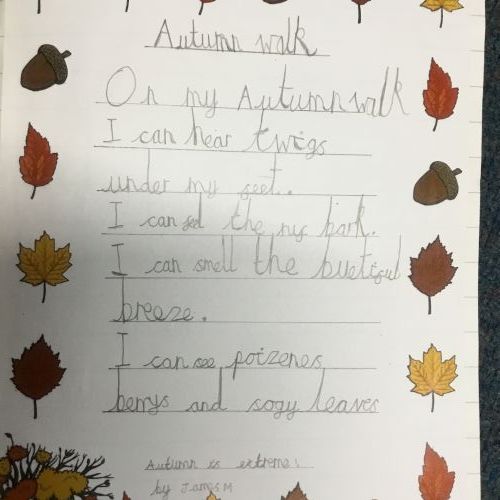 Autumn walk
On my Autumn walk
I can hear twigs
under my feet..
I can feel the rus bark.
I can smell the buetiful
breeze.
I can see poizenes
berrys and sogy leaves
Autumn is extreme!
by James M